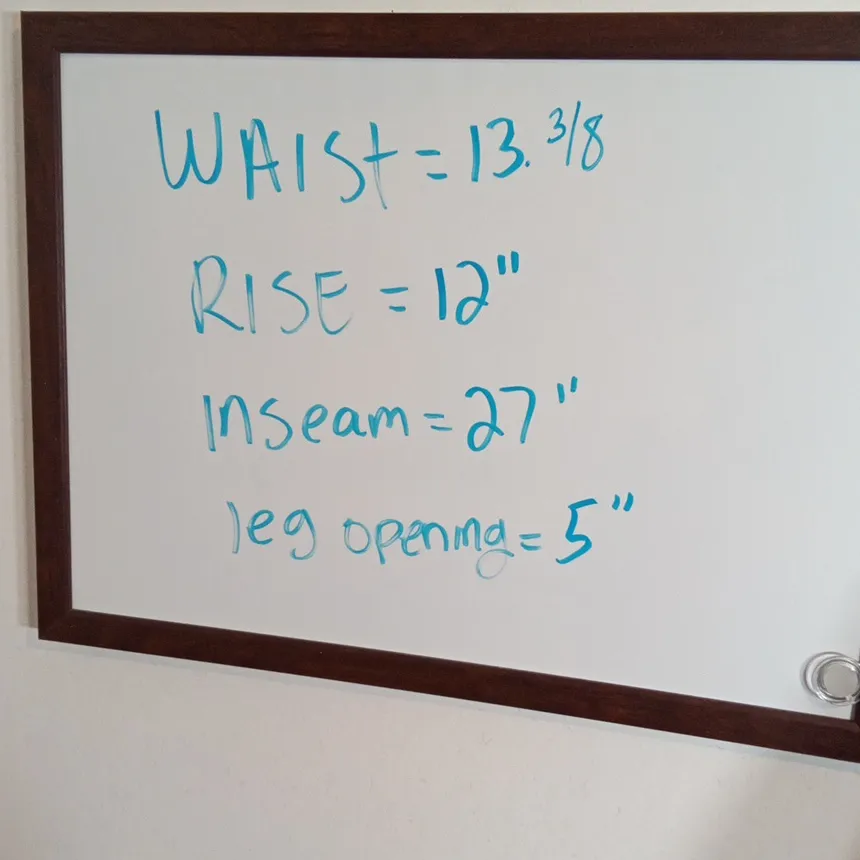 WAISt = 13. 3/8
RISE = 12"
Inseam = 27"
leg opening = 5"